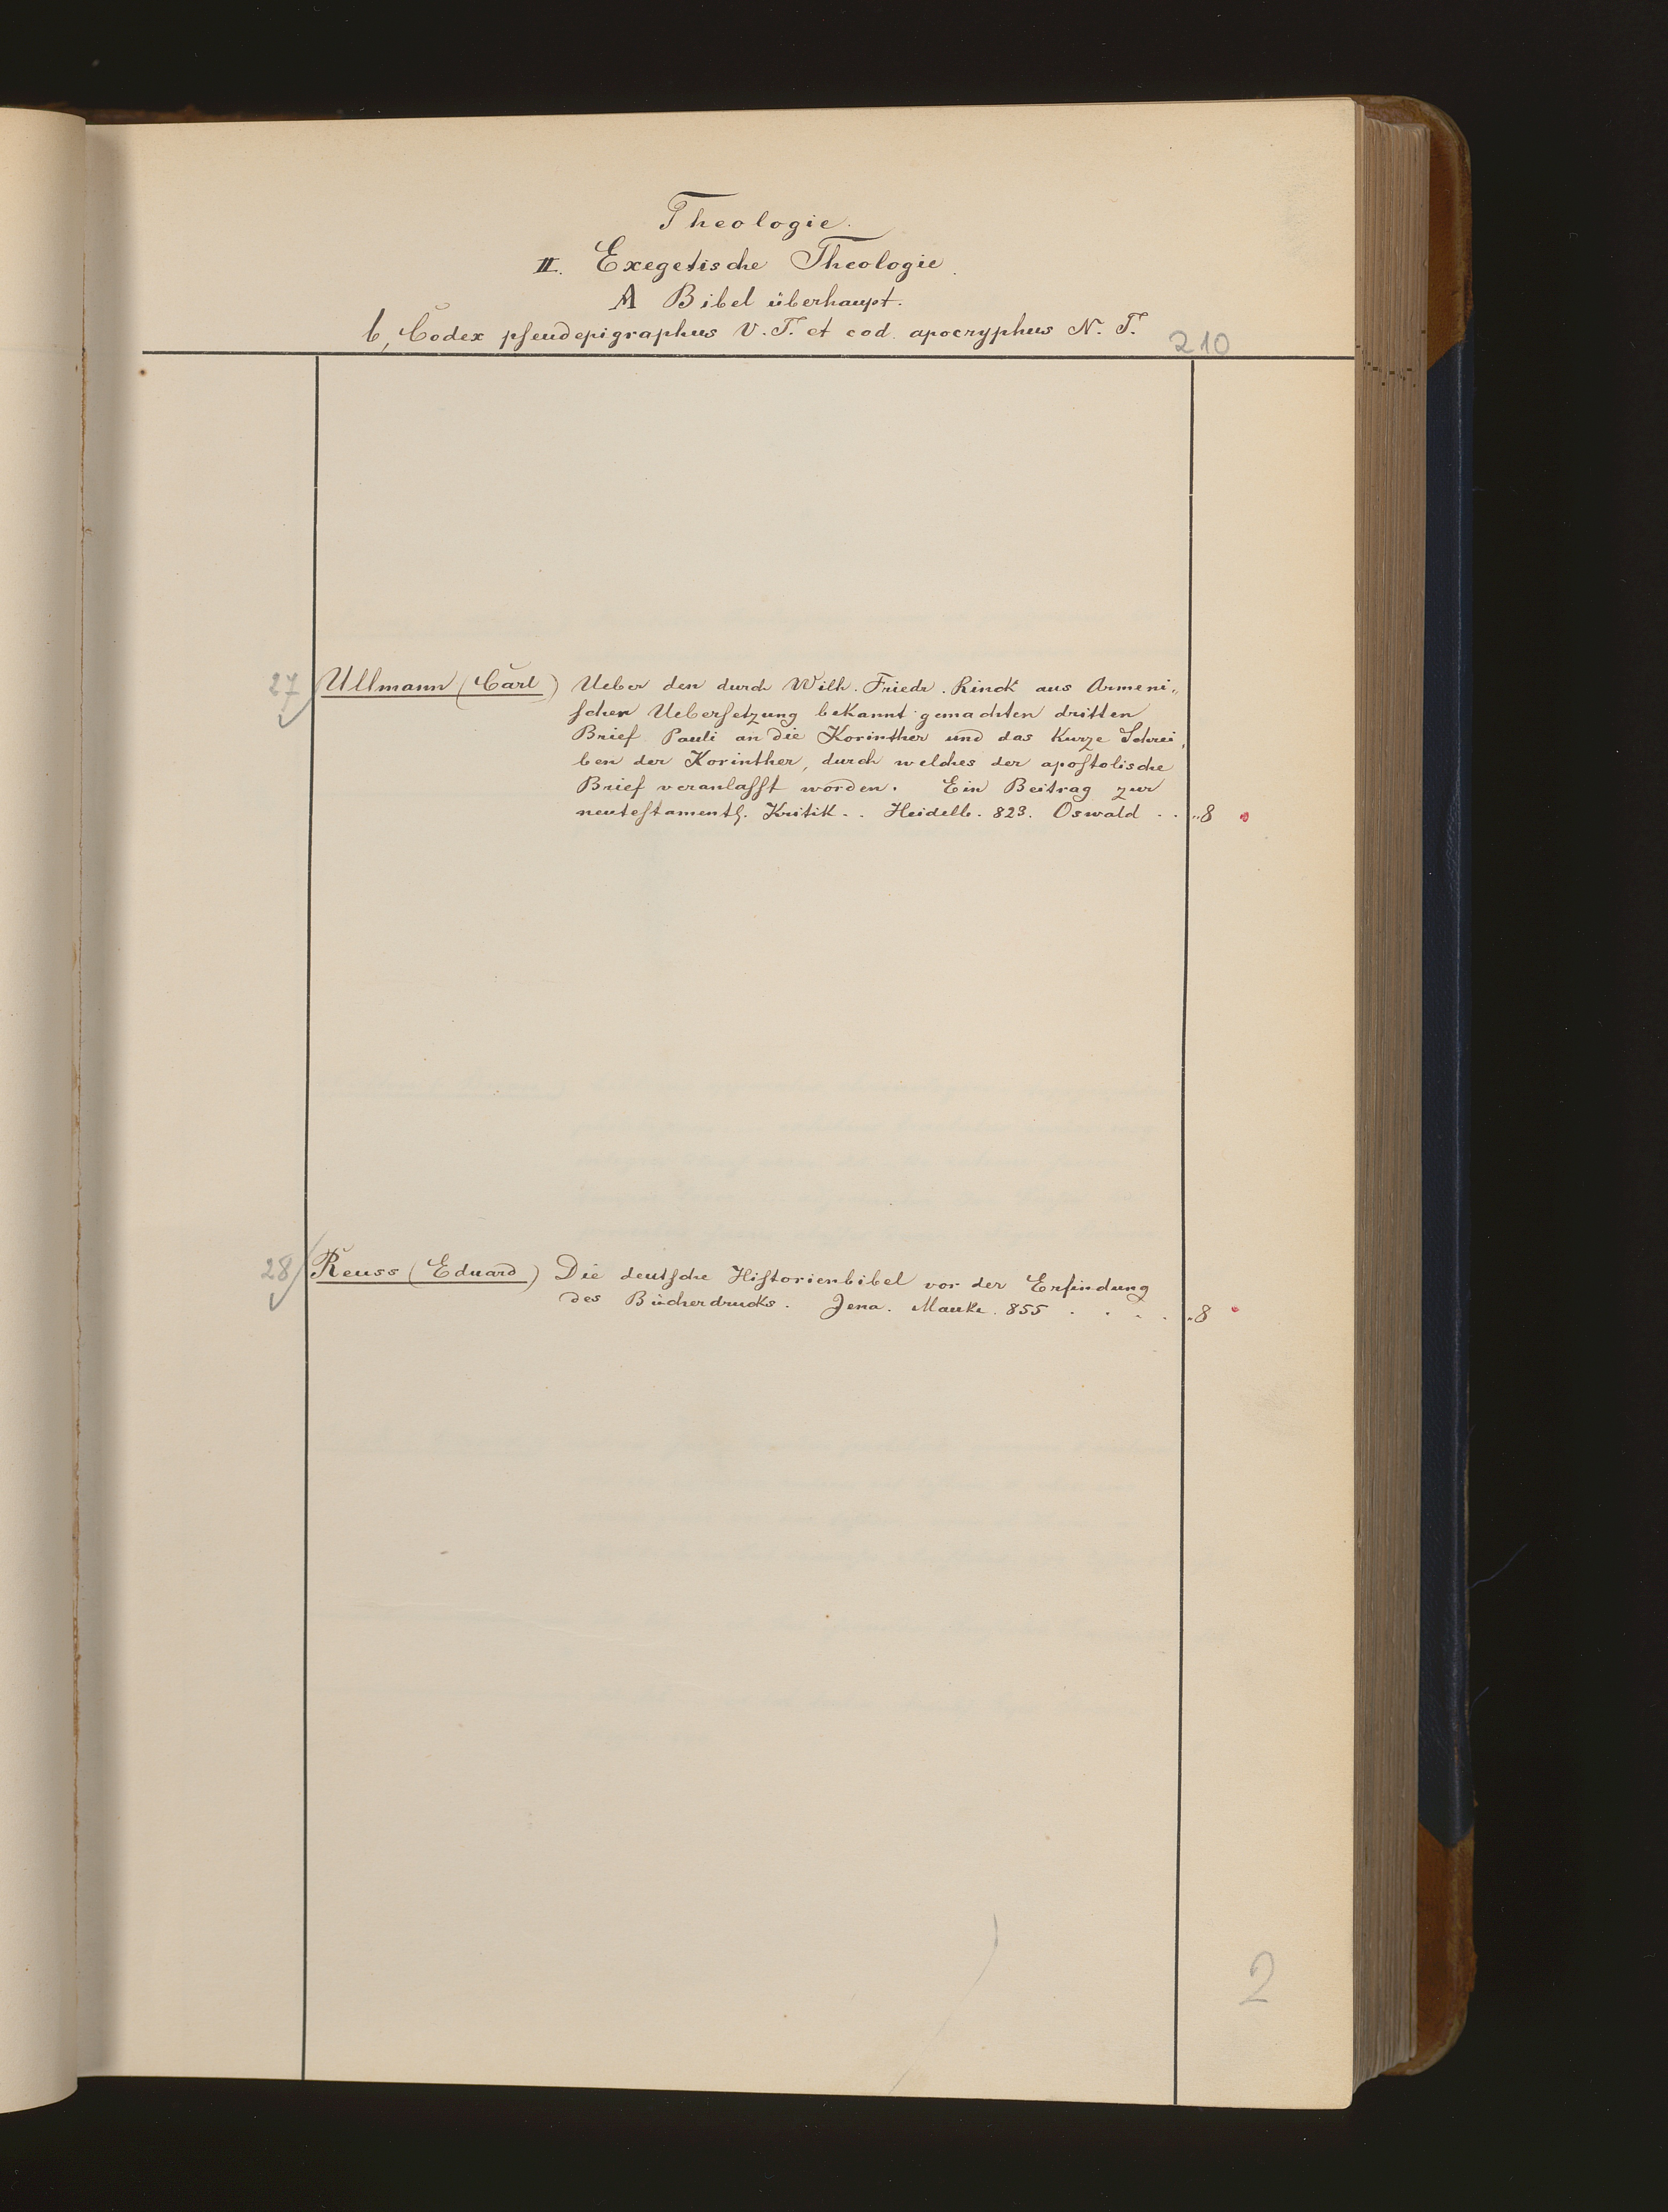 Theologie.
II. Exegetische Theologie.
A Bibel überhaupt.
b, Codex pseudepigraphus V. T. et cod. apocryphus N. T.
210
27 Ullmann (Carl) Ueber den durch Wilh. Friedr. Rinck aus Armeni„
schen Uebersetzung bekannt gemachten dritten
Brief Pauli an die Korinther und das Kurze Schrei„
ben der Korinther, durch welches der apostolische
Brief veranlasst worden. Ein Beitrag zur
neutestamentl. Kritik . . Heidelb. 823. Oswald . . „8
28 Reuss (Eduard) Die deutsche Historienbibel vor der Erfindung
des Bücherdrucks. Jena. Mauke. 855 . . . . „8
2